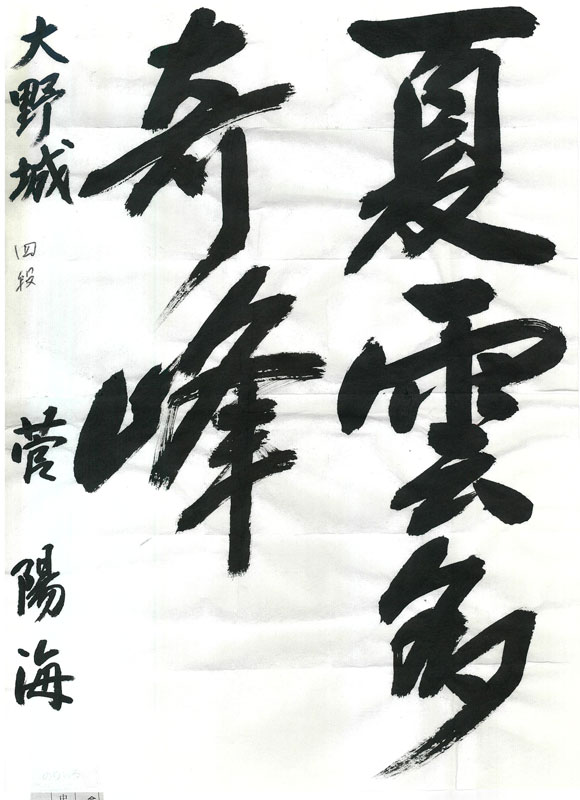 夏雲多
奇峰
大野城 四段 菅 陽海